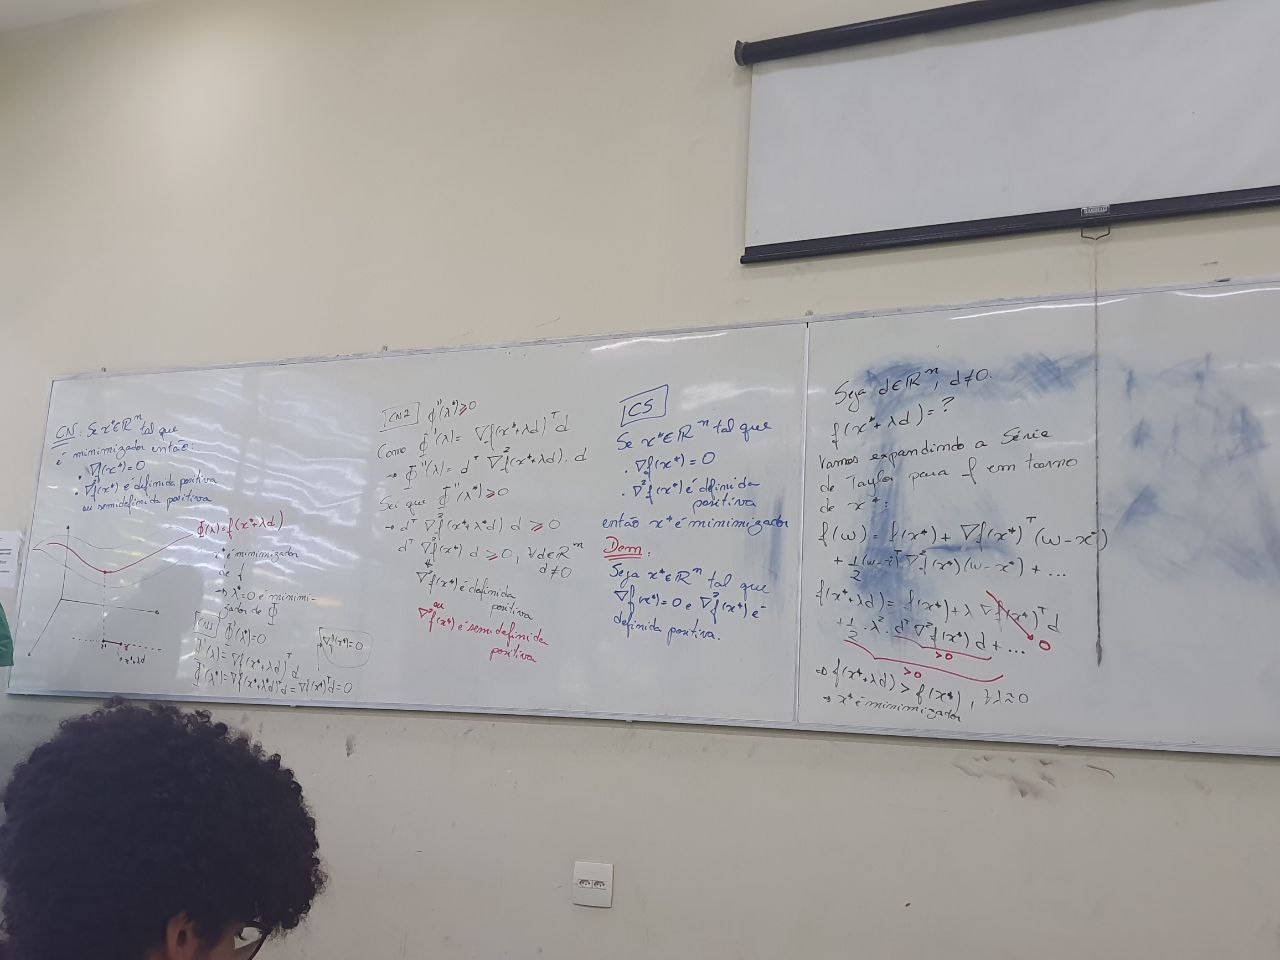 CN: Se x* ∈ ℝⁿ tal que
é minimizador então:
. ∇f(x*) = 0
. ∇²f(x*) é definida positiva
ou semidefinida positiva
Φ(λ) = f(x* + λd)
x* é minimizador
de f
⇒ λ* = 0 é minimi-
zador de Φ
x* + λd
CN1 Φ'(λ*) = 0
Φ'(λ) = ∇f(x* + λd)ᵀ d
Φ'(λ*) = ∇f(x* + λ*d)ᵀ d = ∇f(x*)ᵀ d = 0
∇f(x*) = 0
CN2 Φ''(λ*) ≥ 0
Como Φ'(λ) = ∇f(x* + λd)ᵀ d
→ Φ''(λ) = dᵀ ∇²f(x* + λd) . d
Sei que Φ''(λ*) ≥ 0
→ dᵀ ∇²f(x* + λ*d) d ≥ 0
dᵀ ∇²f(x*) d ≥ 0, ∀d ∈ ℝⁿ
d ≠ 0
∇²f(x*) é definida
positiva
ou
∇²f(x*) é semidefinida
positiva
CS
Se x* ∈ ℝⁿ tal que
. ∇f(x*) = 0
. ∇²f(x*) é definida
positiva
então x* é minimizador
Dem:
Seja x* ∈ ℝⁿ tal que
∇f(x*) = 0 e ∇²f(x*) é
definida positiva.
Seja d ∈ ℝⁿ, d ≠ 0.
f(x* + λd) = ?
Vamos expandindo a Série
de Taylor para f em torno
de x*:
f(w) = f(x*) + ∇f(x*)ᵀ (w - x*)
+ 1/2 (w - x*)ᵀ ∇²f(x*) (w - x*) + ...
f(x* + λd) = f(x*) + λ ∇f(x*)ᵀ d
0
+ 1/2 . λ² . dᵀ ∇²f(x*) d + ...
> 0
> 0
⇒ f(x* + λd) > f(x*), ∀λ ≈ 0
→ x* é minimizador